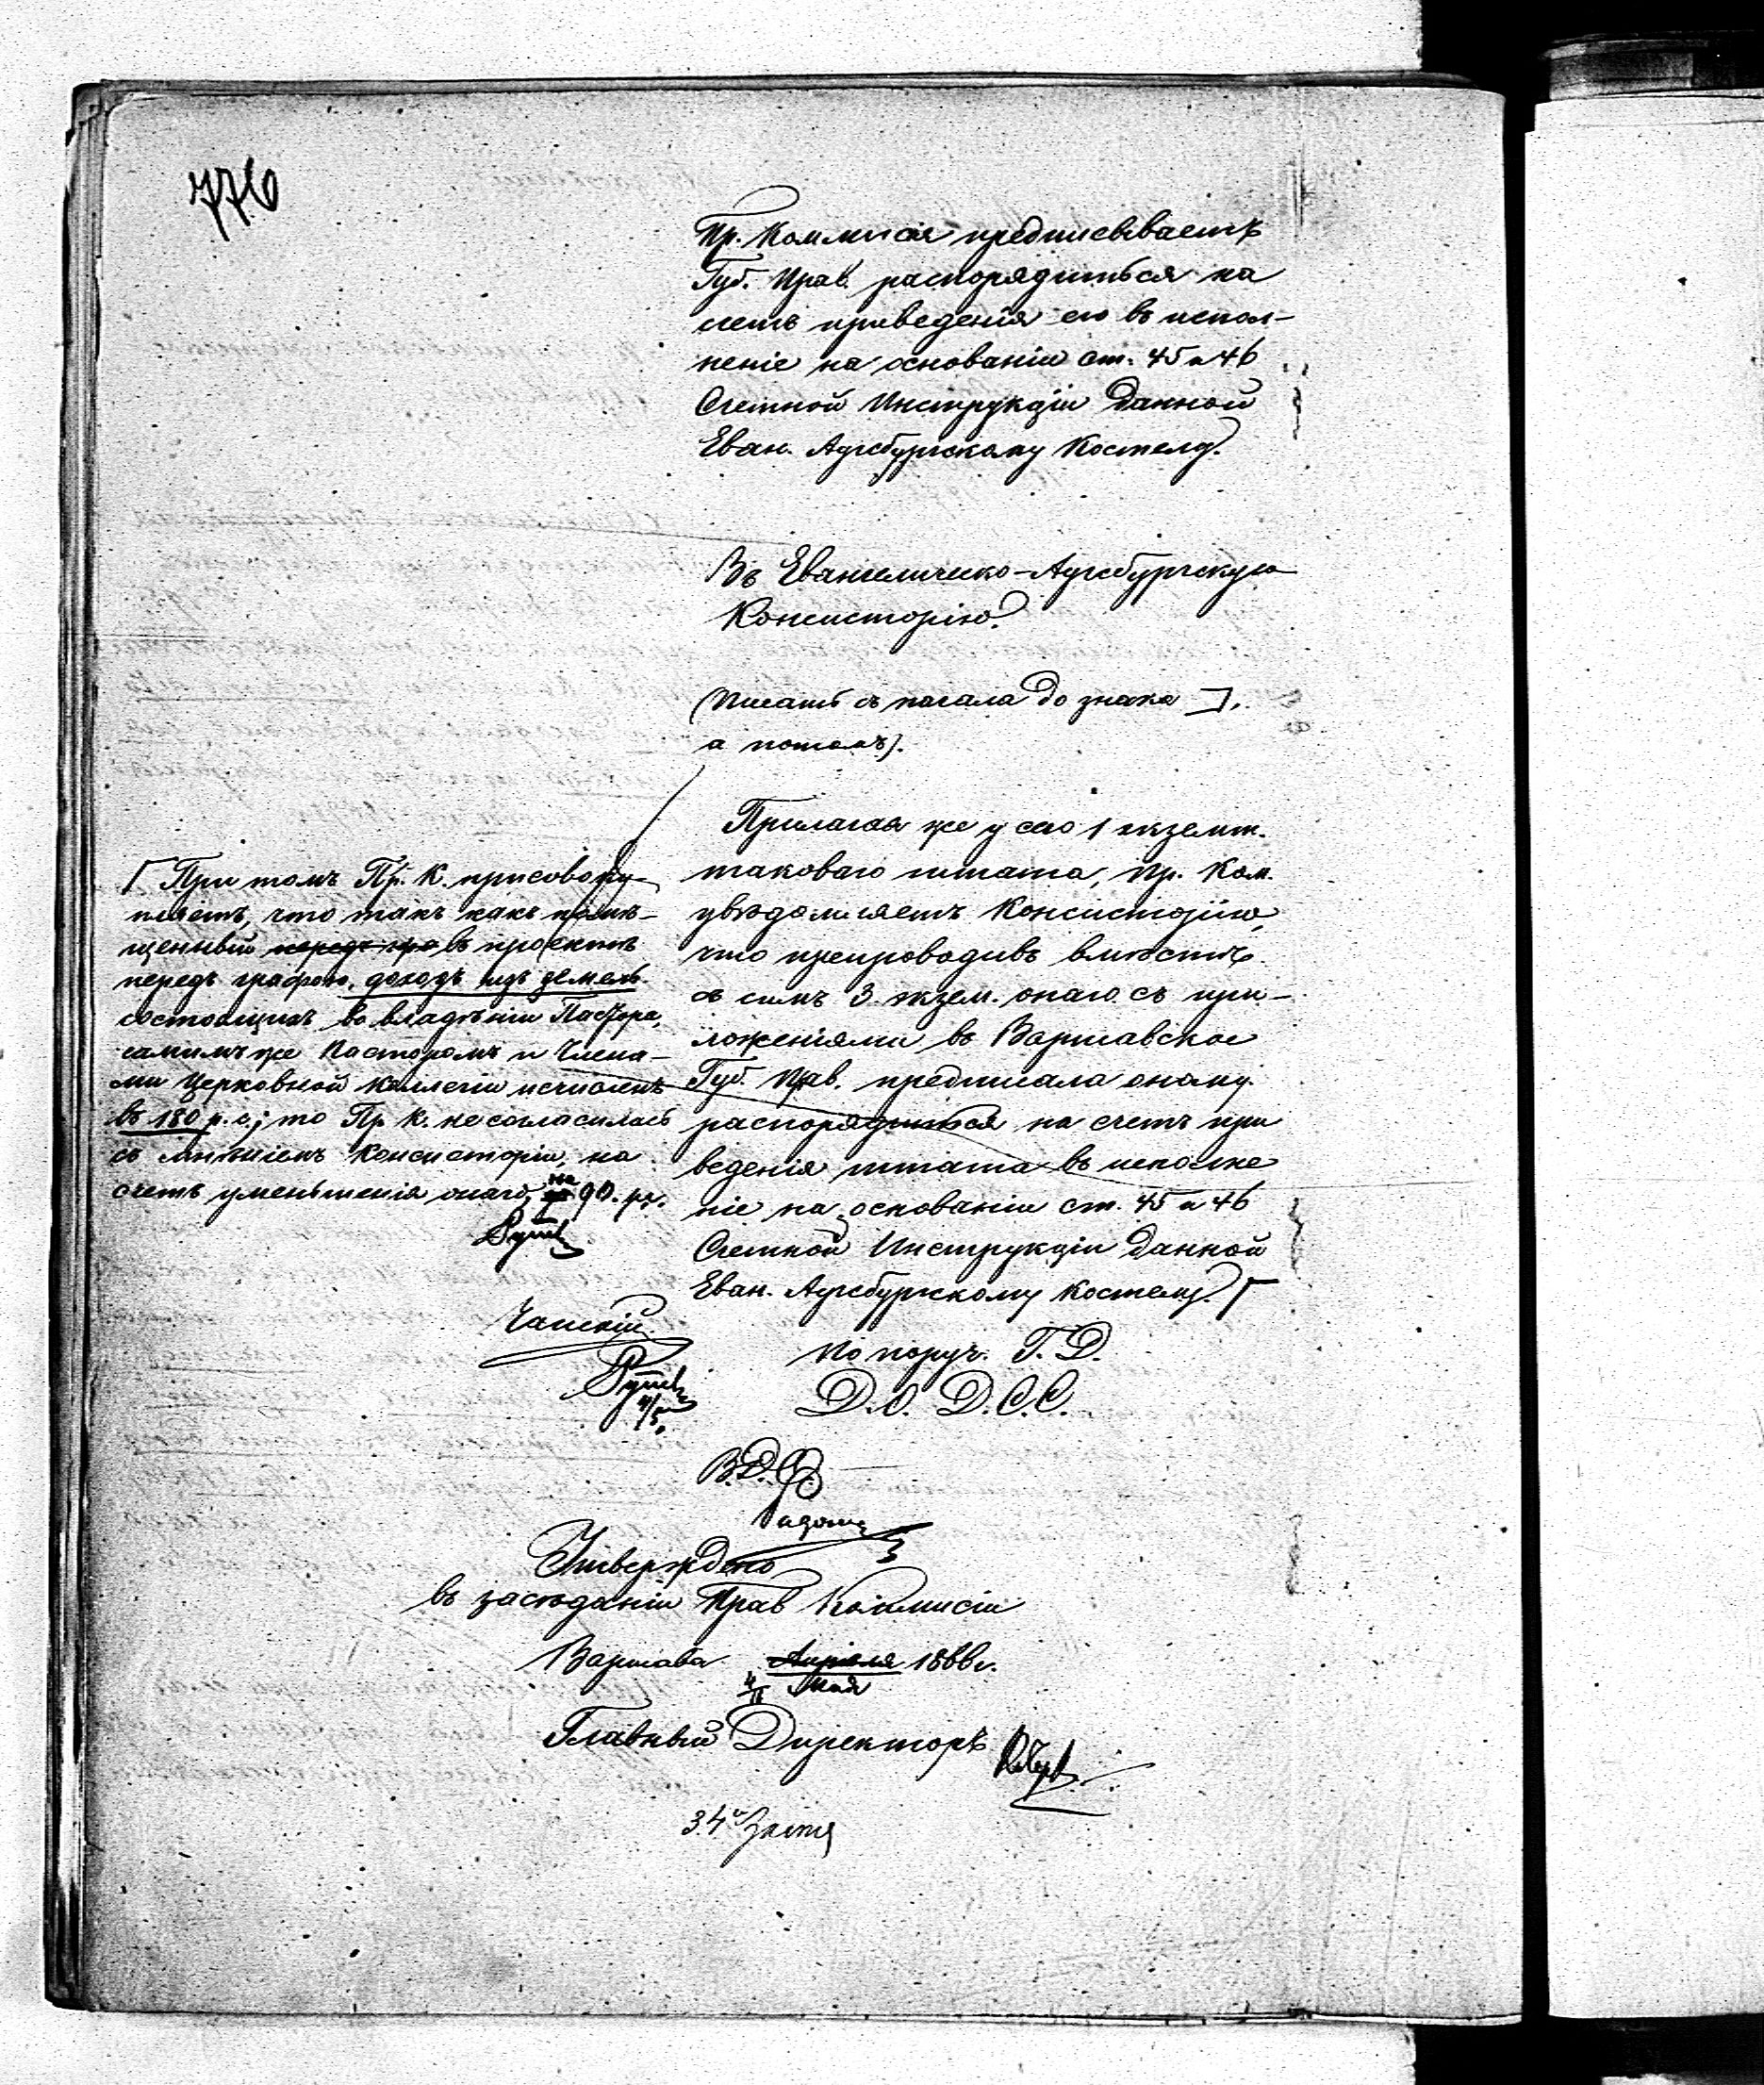 776
Пр. Коммисія предписываетъ
Губ. Прав. распорядиться на
счетъ приведенія его въ испол-
неніе на основаніи ст. 45 и 46
Счетной Инструкціи данной
Еван. Аугсбургскому Костелу.
Въ Евангелическо-Аугсбургскую
Консисторію.
(Писать съ начала до знака ],
а потомъ).
Прилагая же у сего 1 экземп.
таковаго штата, Пр. Ком.
увѣдомляетъ Консисторію,
что препроводивъ вмѣстѣ
съ симъ 3 экзем. онаго съ при-
ложеніями въ Варшавское
Губ. Прав. предписала оному
распорядиться на счетъ при
веденія штата въ исполне
ніе на основаніи ст. 45 и 46
Счетной Инструкціи данной
Еван. Аугсбургскому Костелу. Г
Г При томъ Пр. К. присовоку-
пляетъ, что такъ какъ помѣ-
щенный въ проектѣ
передъ графою, доходъ изъ земель
состоящихъ во владѣніи Пастора,
самимъ же Пасторомъ и Члена-
ми Церковной Коллегіи исчисленъ
въ 180 р. с.; то Пр. К. не согласилась
съ мнѣніемъ Консисторіи, на
счетъ уменьшенія онаго на 90. р.
По поруч. Г. Д.
Д. О. Д. С. С.
В. Д.
Утверждено
въ засѣданіи Прав Коммисіи
Варшава Апрѣля 1866 г.
4/16 Мая
Главный Директоръ